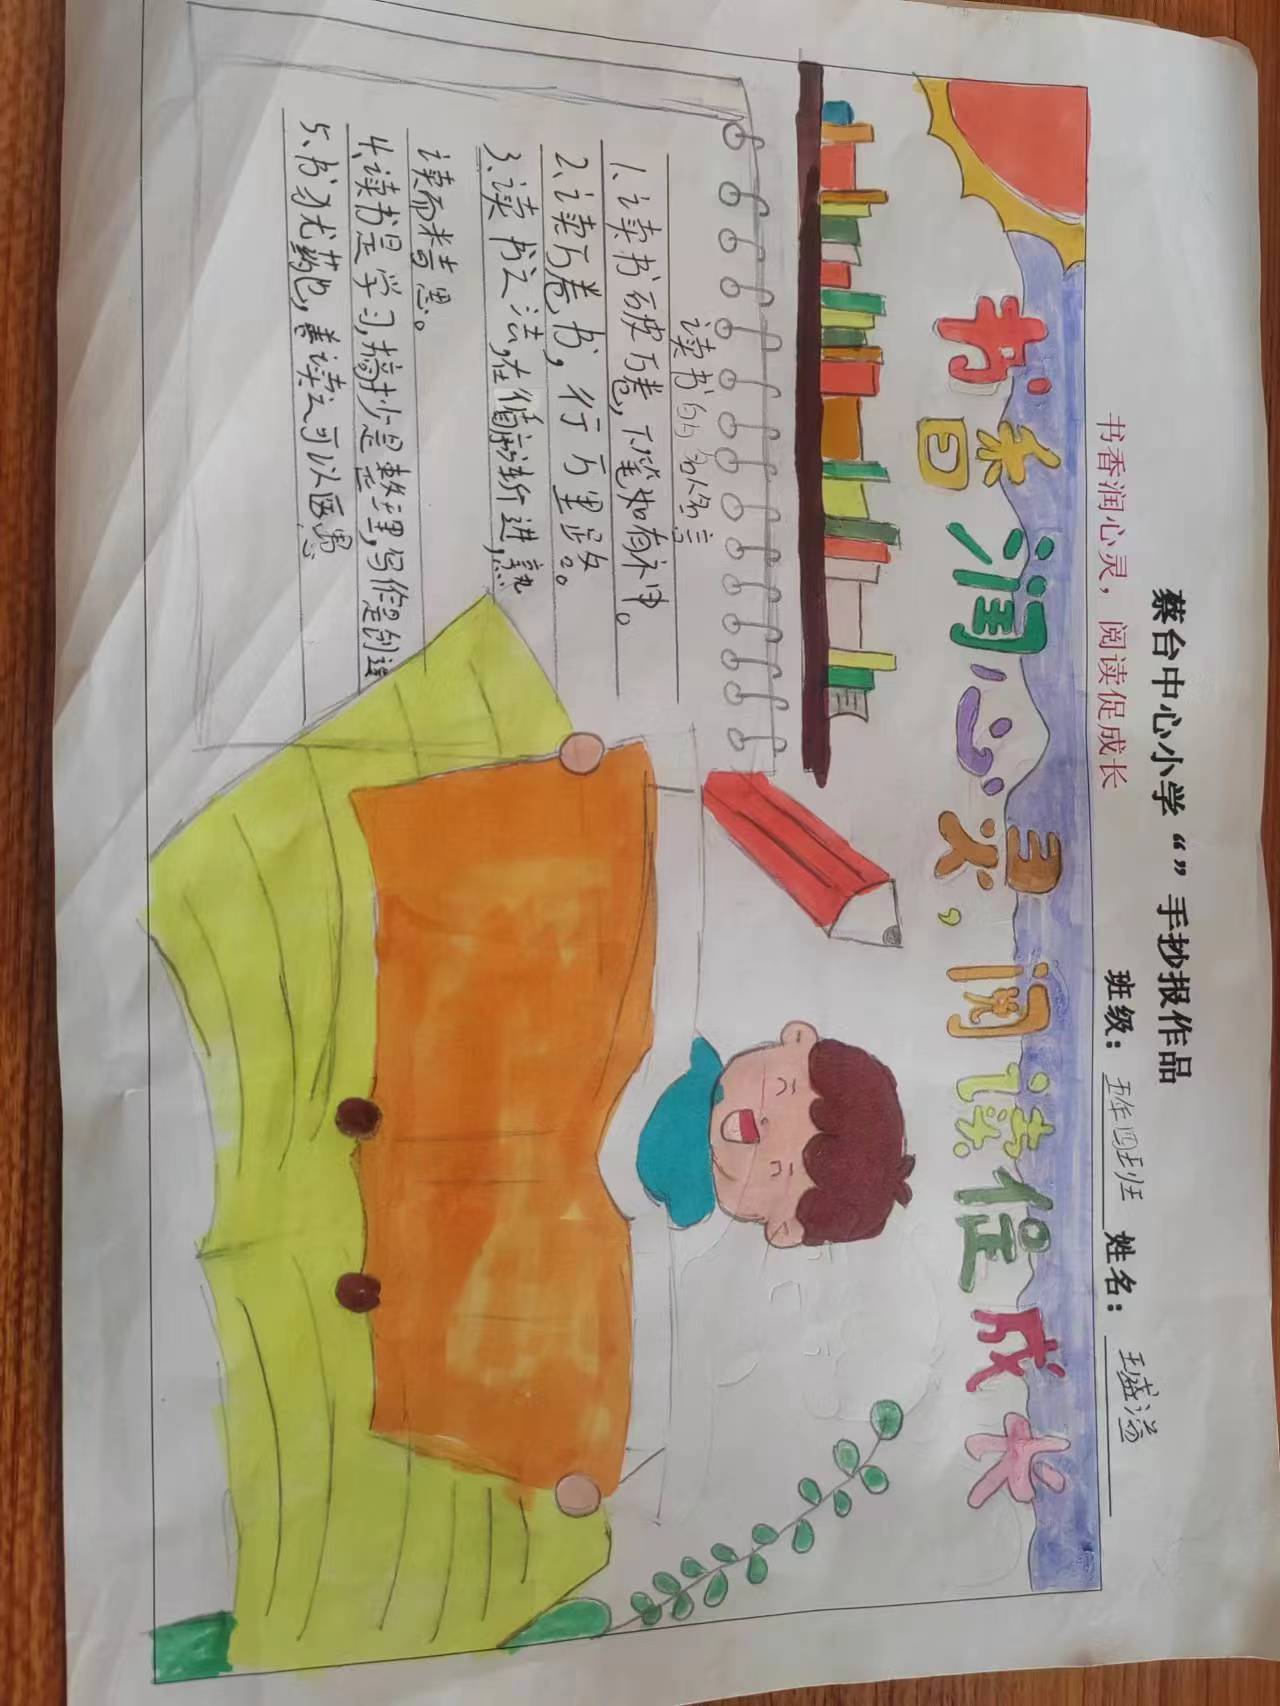 蔡台中心小学“”手抄报作品
书香润心灵，阅读促成长
班级：五年四班 姓名：王盛溢
书香润心灵，阅读促成长
读书的名人名言
1、读书破万卷，下笔如有神。
2、读万卷书，行万里路。
3、读书之法，在循序渐进，熟
读而精思。
4、读书是学习，摘抄是整理，写作是创造
5、书犹药也，善读之可以医愚